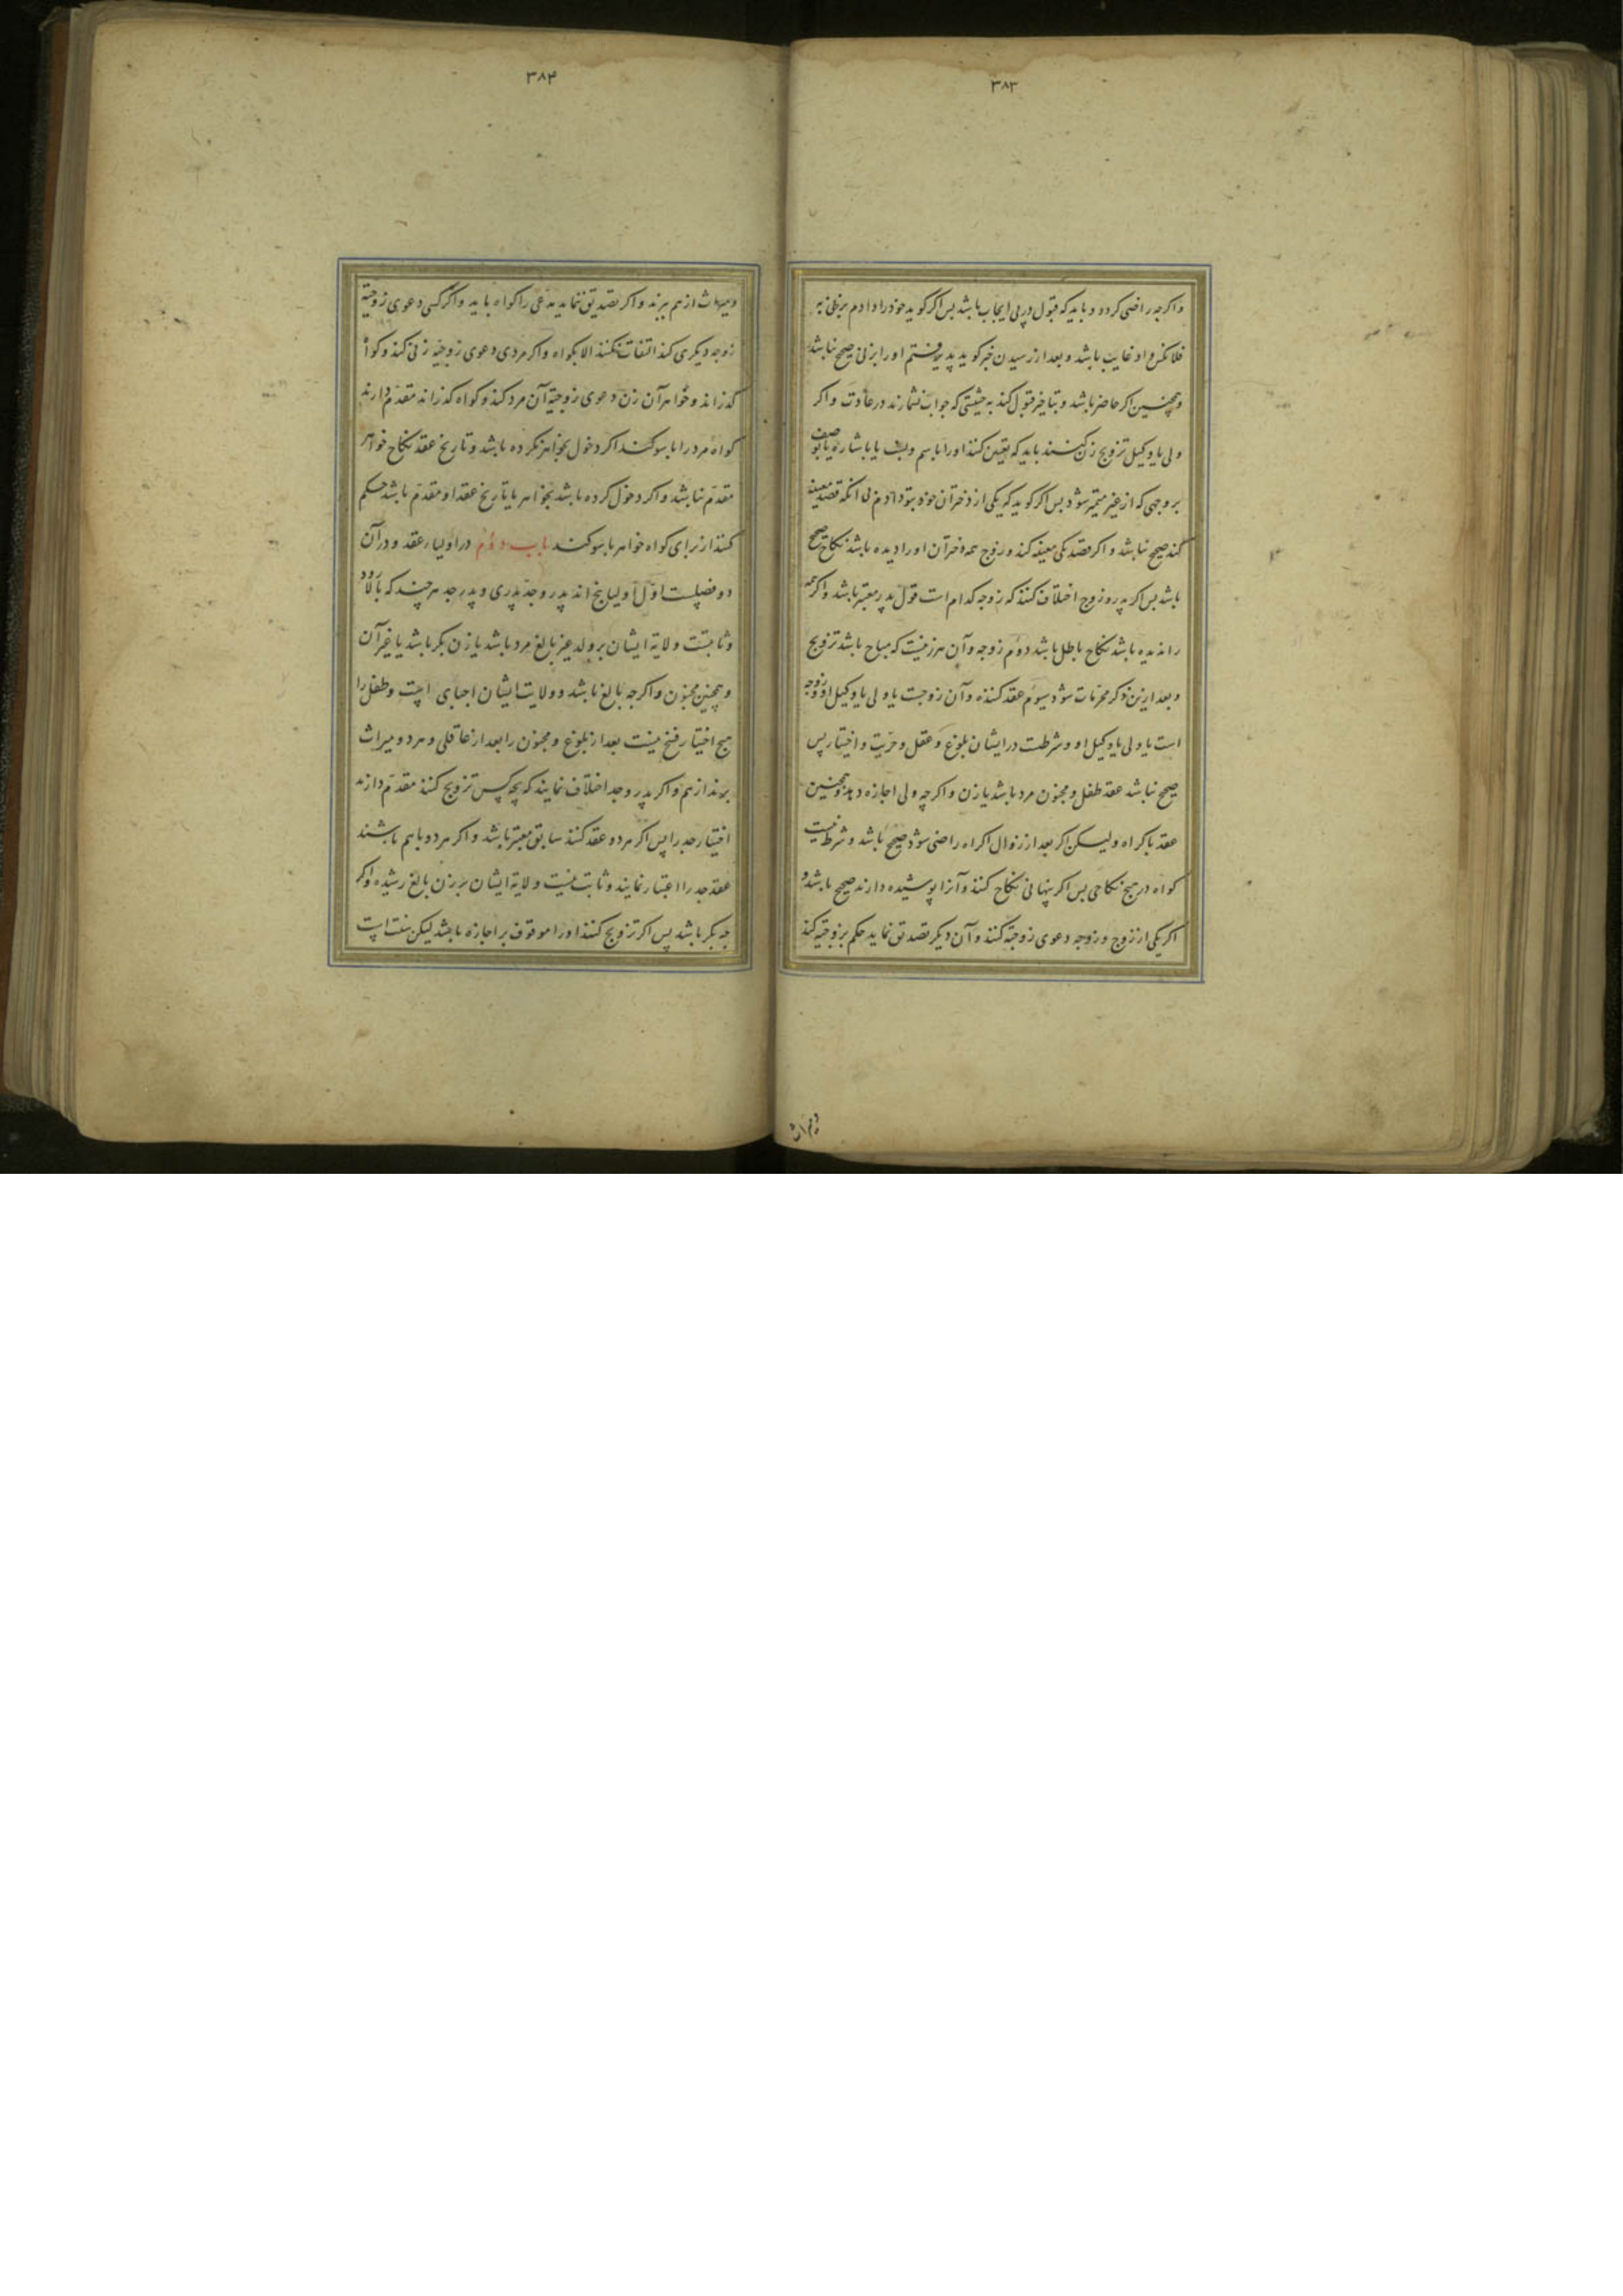 ۳۸۳
واکرجه راضی کردد و باید که قبول در پی ایجاب باشد بس اکر کوید خودرا دادم بزنی به
فلانکس و او غایب باشد و بعد از رسیدن خبر کوید پذیرفتم اورا بزنی صحیح نباشد
و همچنین اکر حاضر باشد و بتاخیر قبول کند به حیثیتی که جواب نشمارند در عادت و اکر
ولی یا وکیل تزویج زن کنند باید که تعیین کنند اورا باسم و یا باشاره یا بوصف
بر وجهی که از غیر متمیز شود بس اکر کوید که یکی از دختران خود بتو دادم بی انکه قصد معینه
کند صحیح نباشد و اکر قصد یکی معینه کند و زوج همه دختران اورا دیده باشد نکاح صحیح
باشد بس اکر پدر و زوج اختلاف کنند که زوجه کدام است قول پدر معتبر باشد و اکر همه
را ندیده باشد نکاح باطل باشد دوّم زوجه و آن هر زنیست که مباح باشد تزویج
و بعد ازین ذکر محرمات شود سیوم عقد کننده و آن زوجست یا ولی یا وکیل او و زوجه
است یا ولی یا وکیل او و شرطست در ایشان بلوغ و عقل و حریّت و اختیار پس
صحیح نباشد عقد طفل و مجنون مرد باشد یا زن و اکرچه ولی اجازه دهد و همچنین
عقد باکراه ولیسکن اکر بعد از زوال اکراه راضی شود صحیح باشد و شرط نیست
کواه در هیچ نکاحی بس اکر پنهانی نکاح کنند و آنرا پوشیده دارند صحیح باشد و
اکر یکی از زوج و زوجه دعوی زوجیّة کنند و آن دیکر تصدیق نماید حکم بزوجیّة کنند
ومیراث
۳۸۴
ومیراث از هم برند و اکر تصدیق ننماید مدّعی را کواه باید و اکر کسی دعوی زوجیّة
زوجه دیکری کند التفات نکنند الا بکواه و اکر مردی دعوی زوجیّة زنی کند و کواه
کذراند و خواهر آن زن دعوی زوجیّة آن مرد کند و کواه کذراند مقدّم دارند
کواه مرد را با سوکند اکر دخول بخواهر نکرده باشد و تاریخ عقد نکاح خواهر
مقدّم نباشد و اکر دخول کرده باشد بخواهر یا تاریخ عقد او مقدّم باشد حکم
کنند از برای کواه خواهر با سوکند باب دوّم در اولیاء عقد و در آن
دو فصلست اوّل اولیا پنج اند پدر و جدّ پدری و پدر جد هر چند که بالا رود
و ثابتست ولایة ایشان بر ولد غیر بالغ مرد باشد یا زن بکر باشد یا غیر آن
و همچنین مجنون و اکرجه بالغ باشد و ولایت ایشان اجباری است و طفل را
هیچ اختیار فسخ نیست بعد از بلوغ و مجنون را بعد از عاقلی و هر دو میراث
برند از هم و اکر پدر و جد اختلاف نمایند که بچه کس تزویج کنند مقدّم دارند
اختیار جد را پس اکر هر دو عقد کنند سابق معتبر باشد و اکر هر دو باهم باشند
عقد جد را اعتبار نمایند و ثابت نیست ولایة ایشان بر زن بالغ رشیده و اکر
چه بکر باشد پس اکر تزویج کنند اورا موقوف بر اجازه باشد لیکن سنت است